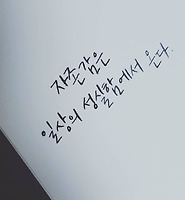 자존감은
일상의 성실함에서 온다.